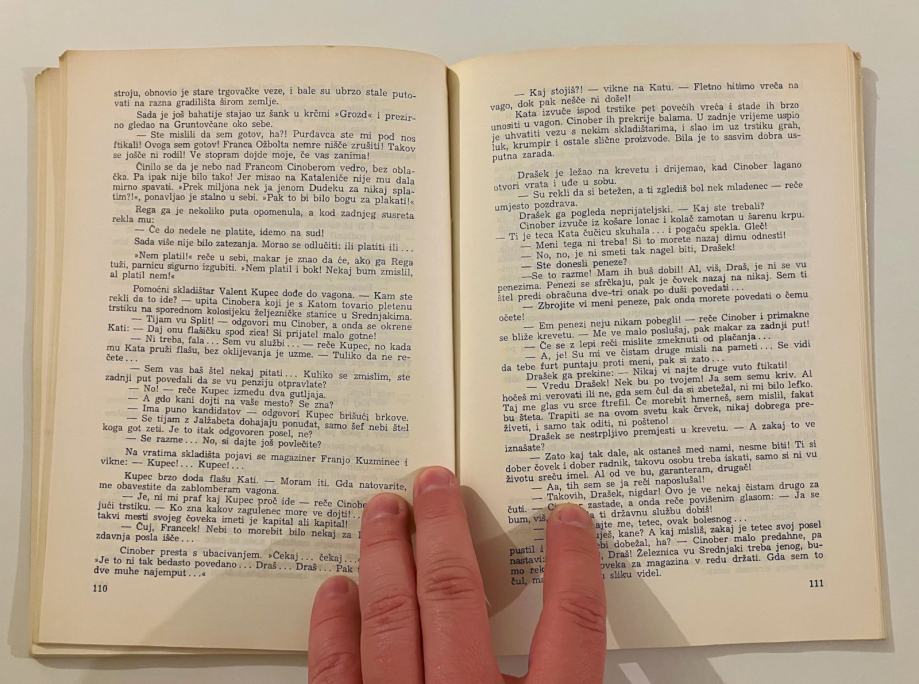 stroju, obnovio je stare trgovačke veze, i bale su ubrzo stale puto-
vati na razna gradilišta širom zemlje.
Sada je još bahatije stajao uz šank u krčmi »Grozd« i prezir-
no gledao na Gruntovčane oko sebe.
— Ste mislili da sem gotov, ha?! Purdavca ste mi pod nos
ftikali! Ovoga sem gotov! Franca Ožbolta nemre nišče zrušiti! Takov
se jošče ni rodil! Ve stopram dojde moje, če vas zanima!
Činilo se da je nebo nad Francom Cinoberom vedro, bez obla-
čka. Pa ipak nije bilo tako! Jer misao na Kataleniće nije mu dala
mirno spavati. »Prek miljona nek ja jenom Dudeku za nikaj spla-
tim?!«, ponavljao je stalno u sebi. »Pak to bi bilo bogu za plakati!«
Rega ga je nekoliko puta opomenula, a kod zadnjeg susreta
rekla mu:
— Če do nedele ne platite, idemo na sud!
Sada više nije bilo zatezanja. Morao se odlučiti: ili platiti ili...
»Nem platil!« reče u sebi, makar je znao da će, ako ga Rega
tuži, parnicu sigurno izgubiti. »Nem platil i bok! Nekaj bum zmislil,
al platil nem!«
Pomoćni skladištar Valent Kupec dođe do vagona. — Kam ste
rekli da to ide? — upita Cinobera koji je s Katom tovario pletenu
trstiku na sporednom kolosijeku željezničke stanice u Srednjakima.
— Tijam vu Split! — odgovori mu Cinober, a onda se okrene
Kati: — Daj onu flašičku spod zica! Si prijatel malo gotne!
— Ni treba, fala... Sem vu službi... — reče Kupec, no kada
mu Kata pruži flašu, bez oklijevanja je uzme. — Tuliko da ne re-
čete...
— Sem vas baš štel nekaj pitati... Kuliko se zmislim, ste
zadnji put povedali da se vu penziju otpravlate?
— No! — reče Kupec između dva gutljaja.
— A gdo kani dojti na vaše mesto? Se zna?
— Ima puno kandidatov — odgovori Kupec brišući brkove.
— Se tijam z Jalžabeta dohajaju ponuđat, samo šef nebi štel
koga got zeti. Je to itak odgovoren posel, ne?
— Se razme... No, si dajte još povlečite?
Na vratima skladišta pojavi se magaziner Franjo Kuzminec i
vikne: — Kupec!... Kupec!...
Kupec brzo doda flašu Kati. — Moram iti. Gda natovarite,
me obavestite da zablomberam vagona.
— Je, ni mi praf kaj Kupec proč ide — reče Cinober
jući trstiku. — Ko zna kakov zagulenec more ve dojti!...
takvi mesti svojeg čoveka imeti je kapital ali kapital!
— Čuj, Francek! Nebi to morebit bilo nekaj za
zdavnja posla išče...
Cinober presta s ubacivanjem. »Čekaj... čekaj...
»Je to ni tak bedasto povedano... Draš... Draš... Pak
dve muhe najemput...«
110
— Kaj stojiš?! — vikne na Katu. — Fletno hitimo vreča na
vago, dok pak nešče ni došel!
Kata izvuče ispod trstike pet povećih vreća i stade ih brzo
unositi u vagon. Cinober ih prekrije balama. U zadnje vrijeme uspio
je uhvatiti vezu s nekim skladištarima, i slao im uz trstiku grah,
luk, krumpir i ostale slične proizvode. Bila je to sasvim dobra us-
putna zarada.
Drašek je ležao na krevetu i drijemao, kad Cinober lagano
otvori vrata i uđe u sobu.
— Su rekli da si betežen, a ti zglediš bol nek mladenec — reče
umjesto pozdrava.
Drašek ga pogleda neprijateljski. — Kaj ste trebali?
Cinober izvuče iz košare lonac i kolač zamotan u šarenu krpu.
— Ti je teca Kata čučicu skuhala... i pogaču spekla. Gleč!
— Meni tega ni treba! Si to morete nazaj dimo odnesti!
— No, no, je ni smeti tak nagel biti, Drašek!
— Ste donesli peneze?
—Se to razme! Mam ih buš dobil! Al, viš, Draš, je ni se vu
penezima. Penezi se sfrčkaju, pak je čovek nazaj na nikaj. Sem ti
štel predi obračuna dve-tri onak po duši povedati...
— Zbrojite vi meni peneze, pak onda morete povedati o čemu
očete!
— Em penezi neju nikam pobegli! — reče Cinober i primakne
se bliže krevetu. — Me ve malo poslušaj, pak makar za zadnji put!
— Če se z lepi reči mislite zmeknuti od plačanja...
— A, je! Su mi ve čistam druge misli na pameti... Se vidi
da tebe furt puntaju proti meni, pak si zato...
Drašek ga prekine: — Nikaj vi najte druge vuto ftikati!
— Vredu Drašek! Nek bu po tvojem! Ja sem semu kriv. Al
hočeš mi verovati ili ne, gda sem čul da si zbetežal, ni mi bilo lefko.
Taj me glas vu srce ftrefil. Če morebit hmerneš, sem mislil, fakat
bu šteta. Trapiti se na ovom svetu kak črvek, nikaj dobrega pre-
živeti, i samo tak oditi, ni pošteno!
Drašek se nestrpljivo premjesti u krevetu. — A zakaj to ve
iznašate?
— Zato kaj tak dale, ak ostaneš med nami, nesme biti! Ti si
dober čovek i dober radnik, takovu osobu treba iskati, samo si ni vu
životu sreču imel. Al od ve bu, garanteram, drugač!
— Aa, tih sem se ja reči naposlušal!
— Takovih, Drašek, nigdar! Ovo je ve nekaj čistam drugo za
čuti. — Cinober zastade, a onda reče povišenim glasom: — Ja se
bum, viš, ti državnu službu dobiš!
ajte me, tetec, ovak bolesnog...
uješ, kane? A kaj misliš, zakaj je tetec svoj posel
pustil i bi dobežal, ha? — Cinober malo predahne, pa
nastavi: Draš! Železnica vu Srednjaki treba jenog, bu-
mo rek oveka za magazina v redu držati. Gda sem to
čul, ma sliku videl.
111